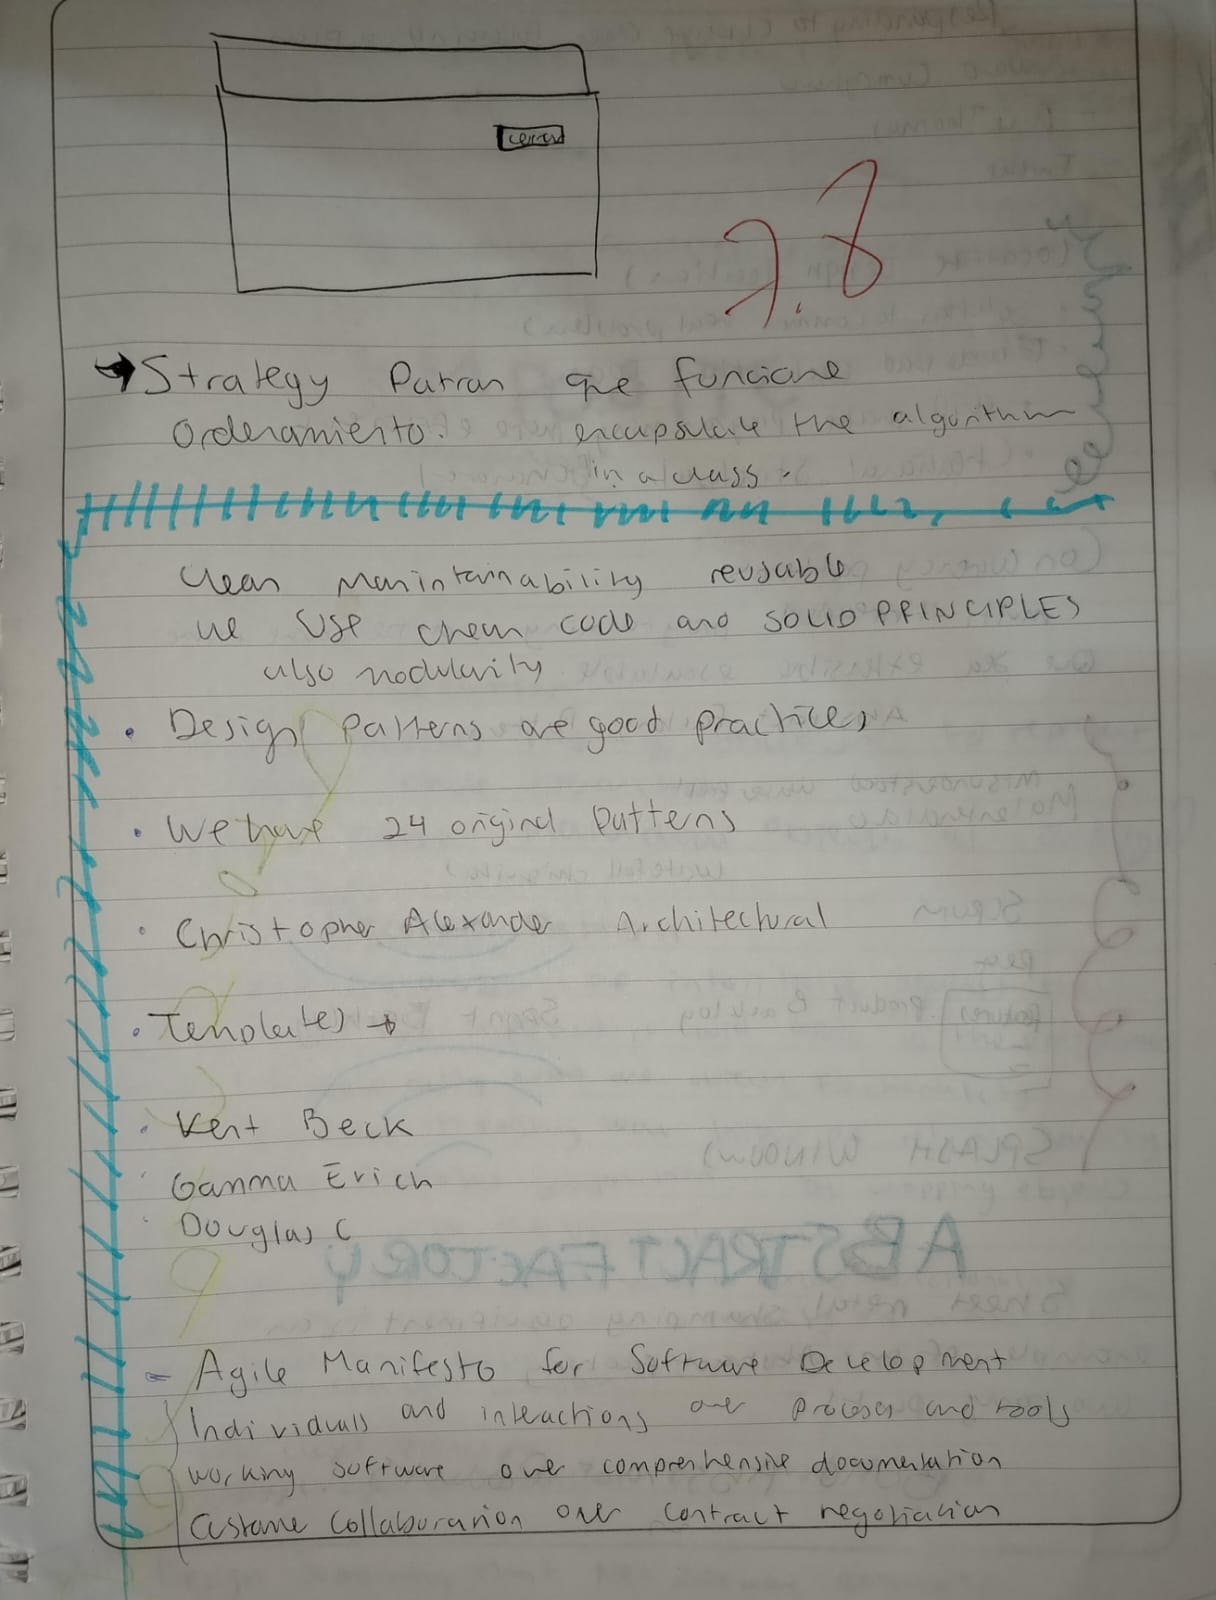 7.8
Strategy Patron que funcione
Ordenamiento. encapsulate the algorithm
in a class.
Clean Manintainability reusable
we use clean code and SOLID PRINCIPLES
also modularity
• Design Patterns are good practices
• We have 24 original Patterns
• Christopher Alexander Architectural
• Templates →
• Kent Beck
• Gamma Erich
• Douglas C
- Agile Manifesto for Software Development
Individuals and interactions over processes and tools
working software over comprenhensive documentation
Custome collaboration over contract negotiation